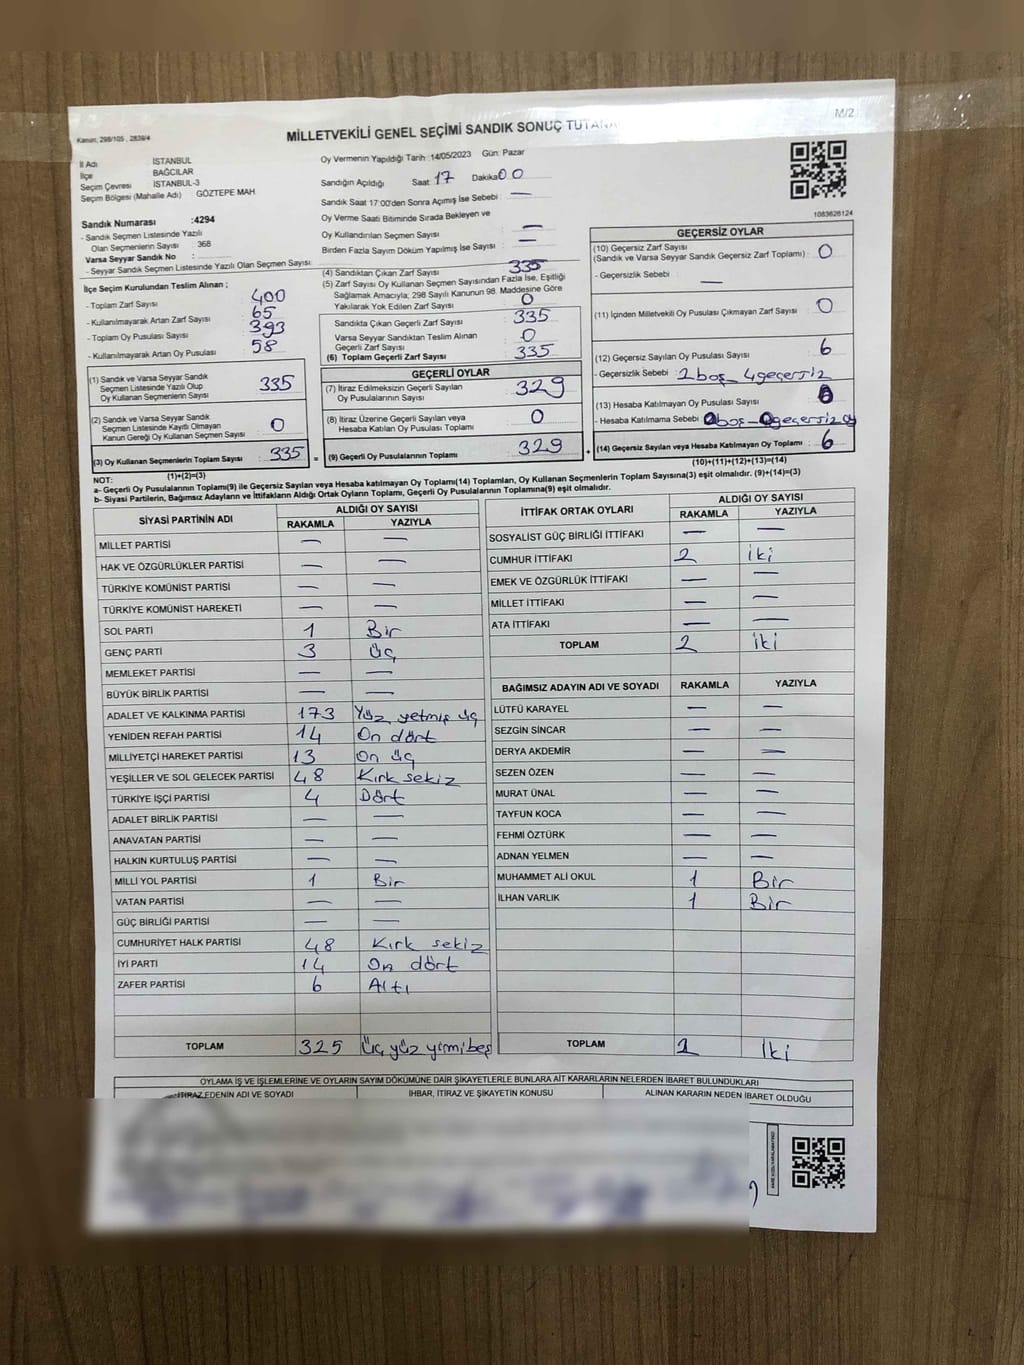 Kanun, 298/105 , 2839/4
MİLLETVEKİLİ GENEL SEÇİMİ SANDIK SONUÇ TUTANA
M/2
İl Adı İSTANBUL
İlçe BAĞCILAR
Seçim Çevresi İSTANBUL-3
Seçim Bölgesi (Mahalle Adı) GÖZTEPE MAH
Sandık Numarası :4294
- Sandık Seçmen Listesinde Yazılı
Olan Seçmenlerin Sayısı : 368
Varsa Seyyar Sandık No :
- Seyyar Sandık Seçmen Listesinde Yazılı Olan Seçmen Sayısı :
İlçe Seçim Kurulundan Teslim Alınan ;
- Toplam Zarf Sayısı : 400
- Kullanılmayarak Artan Zarf Sayısı : 65
- Toplam Oy Pusulası Sayısı : 393
- Kullanılmayarak Artan Oy Pusulası : 58
(1) Sandık ve Varsa Seyyar Sandık
Seçmen Listesinde Yazılı Olup
Oy Kullanan Seçmenlerin Sayısı : 335
(2) Sandık ve Varsa Seyyar Sandık
Seçmen Listesinde Kayıtlı Olmayan
Kanun Gereği Oy Kullanan Seçmen Sayısı : 0
(3) Oy Kullanan Seçmenlerin Toplam Sayısı : 335
(1)+(2)=(3)
Oy Vermenin Yapıldığı Tarih :14/05/2023 Gün: Pazar
Sandığın Açıldığı Saat: 17 Dakika: 00
Sandık Saat 17:00'den Sonra Açımış İse Sebebi : —
Oy Verme Saati Bitiminde Sırada Bekleyen ve
Oy Kullandırılan Seçmen Sayısı : —
Birden Fazla Sayım Döküm Yapılmış İse Sayısı : —
(4) Sandıktan Çıkan Zarf Sayısı : 335
(5) Zarf Sayısı Oy Kullanan Seçmen Sayısından Fazla İse, Eşitliği
Sağlamak Amacıyla; 298 Sayılı Kanunun 98. Maddesine Göre
Yakılarak Yok Edilen Zarf Sayısı : 0
Sandıkta Çıkan Geçerli Zarf Sayısı : 335
Varsa Seyyar Sandıktan Teslim Alınan
Geçerli Zarf Sayısı : 0
(6) Toplam Geçerli Zarf Sayısı : 335
GEÇERLİ OYLAR
(7) İtiraz Edilmeksizin Geçerli Sayılan
Oy Pusulalarının Sayısı : 329
(8) İtiraz Üzerine Geçerli Sayılan veya
Hesaba Katılan Oy Pusulası Toplamı : 0
= (9) Geçerli Oy Pusulalarının Toplamı : 329 +
1083628124
GEÇERSİZ OYLAR
(10) Geçersiz Zarf Sayısı
(Sandık ve Varsa Seyyar Sandık Geçersiz Zarf Toplamı) : 0
- Geçersizlik Sebebi : —
(11) İçinden Milletvekili Oy Pusulası Çıkmayan Zarf Sayısı : 0
(12) Geçersiz Sayılan Oy Pusulası Sayısı : 6
- Geçersizlik Sebebi : 2 boş_ 4 geçersiz
(13) Hesaba Katılmayan Oy Pusulası Sayısı :
- Hesaba Katılmama Sebebi : boş_ geçersiz oy
(14) Geçersiz Sayılan veya Hesaba Katılmayan Oy Toplamı : 6
(10)+(11)+(12)+(13)=(14)
NOT:
a- Geçerli Oy Pusulalarının Toplamı(9) ile Geçersiz Sayılan veya Hesaba katılmayan Oy Toplamı(14) Toplamları, Oy Kullanan Seçmenlerin Toplam Sayısına(3) eşit olmalıdır. (9)+(14)=(3)
b- Siyasi Partilerin, Bağımsız Adayların ve İttifakların Aldığı Ortak Oyların Toplamı, Geçerli Oy Pusulalarının Toplamına(9) eşit olmalıdır.
SİYASİ PARTİNİN ADI ALDIĞI OY SAYISI
RAKAMLA YAZIYLA
MİLLET PARTİSİ — —
HAK VE ÖZGÜRLÜKLER PARTİSİ — —
TÜRKİYE KOMÜNİST PARTİSİ — —
TÜRKİYE KOMÜNİST HAREKETİ — —
SOL PARTİ 1 Bir
GENÇ PARTİ 3 Üç
MEMLEKET PARTİSİ — —
BÜYÜK BİRLİK PARTİSİ — —
ADALET VE KALKINMA PARTİSİ 173 Yüz yetmiş üç
YENİDEN REFAH PARTİSİ 14 On dört
MİLLİYETÇİ HAREKET PARTİSİ 13 On üç
YEŞİLLER VE SOL GELECEK PARTİSİ 48 Kırk sekiz
TÜRKİYE İŞÇİ PARTİSİ 4 Dört
ADALET BİRLİK PARTİSİ — —
ANAVATAN PARTİSİ — —
HALKIN KURTULUŞ PARTİSİ — —
MİLLİ YOL PARTİSİ 1 Bir
VATAN PARTİSİ — —
GÜÇ BİRLİĞİ PARTİSİ — —
CUMHURİYET HALK PARTİSİ 48 Kırk sekiz
İYİ PARTİ 14 On dört
ZAFER PARTİSİ 6 Altı
TOPLAM 325 Üç yüz yirmi beş
İTTİFAK ORTAK OYLARI ALDIĞI OY SAYISI
RAKAMLA YAZIYLA
SOSYALİST GÜÇ BİRLİĞİ İTTİFAKI — —
CUMHUR İTTİFAKI 2 İki
EMEK VE ÖZGÜRLÜK İTTİFAKI — —
MİLLET İTTİFAKI — —
ATA İTTİFAKI — —
TOPLAM 2 İki
BAĞIMSIZ ADAYIN ADI VE SOYADI RAKAMLA YAZIYLA
LÜTFÜ KARAYEL — —
SEZGİN SİNCAR — —
DERYA AKDEMİR — —
SEZEN ÖZEN — —
MURAT ÜNAL — —
TAYFUN KOCA — —
FEHMİ ÖZTÜRK — —
ADNAN YELMEN — —
MUHAMMET ALİ OKUL 1 Bir
İLHAN VARLIK 1 Bir
TOPLAM 2 İki
OYLAMA İŞ VE İŞLEMLERİNE VE OYLARIN SAYIM DÖKÜMÜNE DAİR ŞİKAYETLERLE BUNLARA AİT KARARLARIN NELERDEN İBARET BULUNDUKLARI
İTİRAZ EDENİN ADI VE SOYADI İHBAR, İTİRAZ VE ŞİKAYETİN KONUSU ALINAN KARARIN NEDEN İBARET OLDUĞU